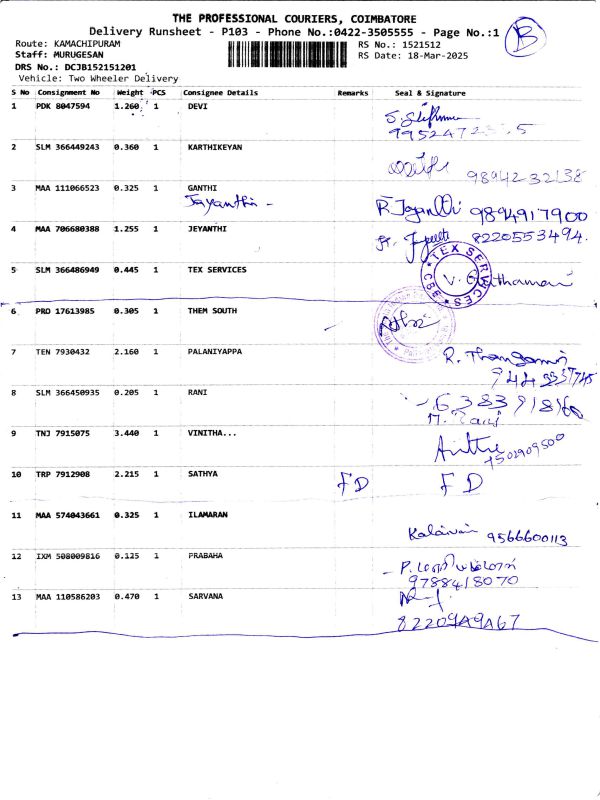 THE PROFESSIONAL COURIERS, COIMBATORE
Delivery Runsheet - P103 - Phone No.:0422-3505555 - Page No.:1
B
Route: KAMACHIPURAM RS No.: 1521512
Staff: MURUGESAN RS Date: 18-Mar-2025
DRS No.: DCJB152151201
Vehicle: Two Wheeler Delivery
S No Consignment No Weight PCS Consignee Details Remarks Seal & Signature
1 PDK 8047594 1.260 1 DEVI
2 SLM 366449243 0.360 1 KARTHIKEYAN
9894232138
3 MAA 111066523 0.325 1 GANTHI
Jayanthi - R Jayanthi 9894917900
4 MAA 706680388 1.255 1 JEYANTHI 8220553494.
5 SLM 366486949 0.445 1 TEX SERVICES
TEX SERVICES CBE
6 PRO 17613985 0.305 1 THEM SOUTH
7 TEN 7930432 2.160 1 PALANIYAPPA
8 SLM 366450935 0.205 1 RANI
9 TNJ 7915075 3.440 1 VINITHA...
10 TRP 7912908 2.215 1 SATHYA FD FD
11 MAA 574043661 0.325 1 ILAMARAN
9566600113
12 IXM 508009816 0.125 1 PRABAHA
9788418070
13 MAA 110586203 0.470 1 SARVANA